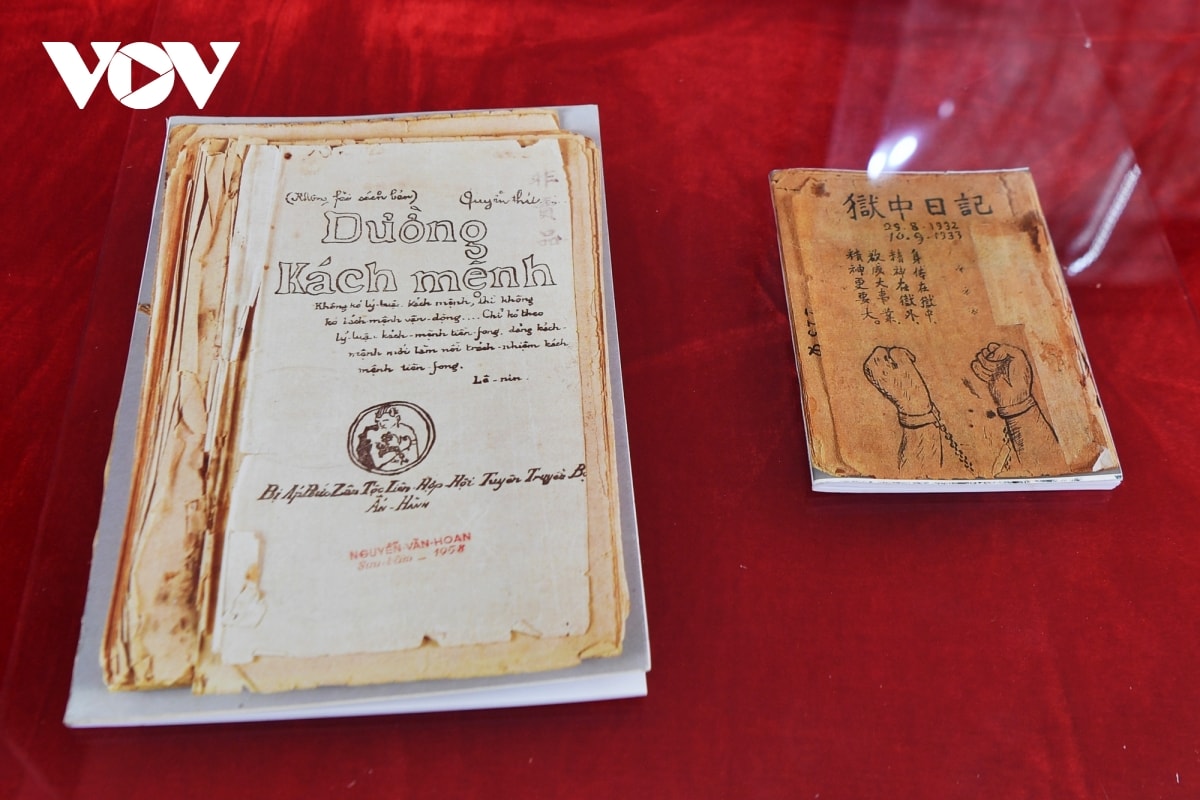 VOV
(Không fải sách bán)
Quyển thứ
非賣品
Đường
Kách mệnh
Không kó lý luận kách mệnh, thì không
kó kách mệnh vận-động.... Chỉ kó theo
lý luận kách-mệnh tiền fong, đảng kách-
mệnh mới làm nổi trách-nhiệm kách
mệnh tiền fong.
Lê-nin.
Bị Áp Bức Zân Tộc Liên-Hiệp-Hội Tuyên Truyền Bộ
Ấn-Hành
NGUYỄN-VĂN-HOAN
Sưu-tầm - 1958
獄中日記
29.8.1932
10.9.1933
身体在獄中
精神在獄外
欲成大事業
精神更要大。